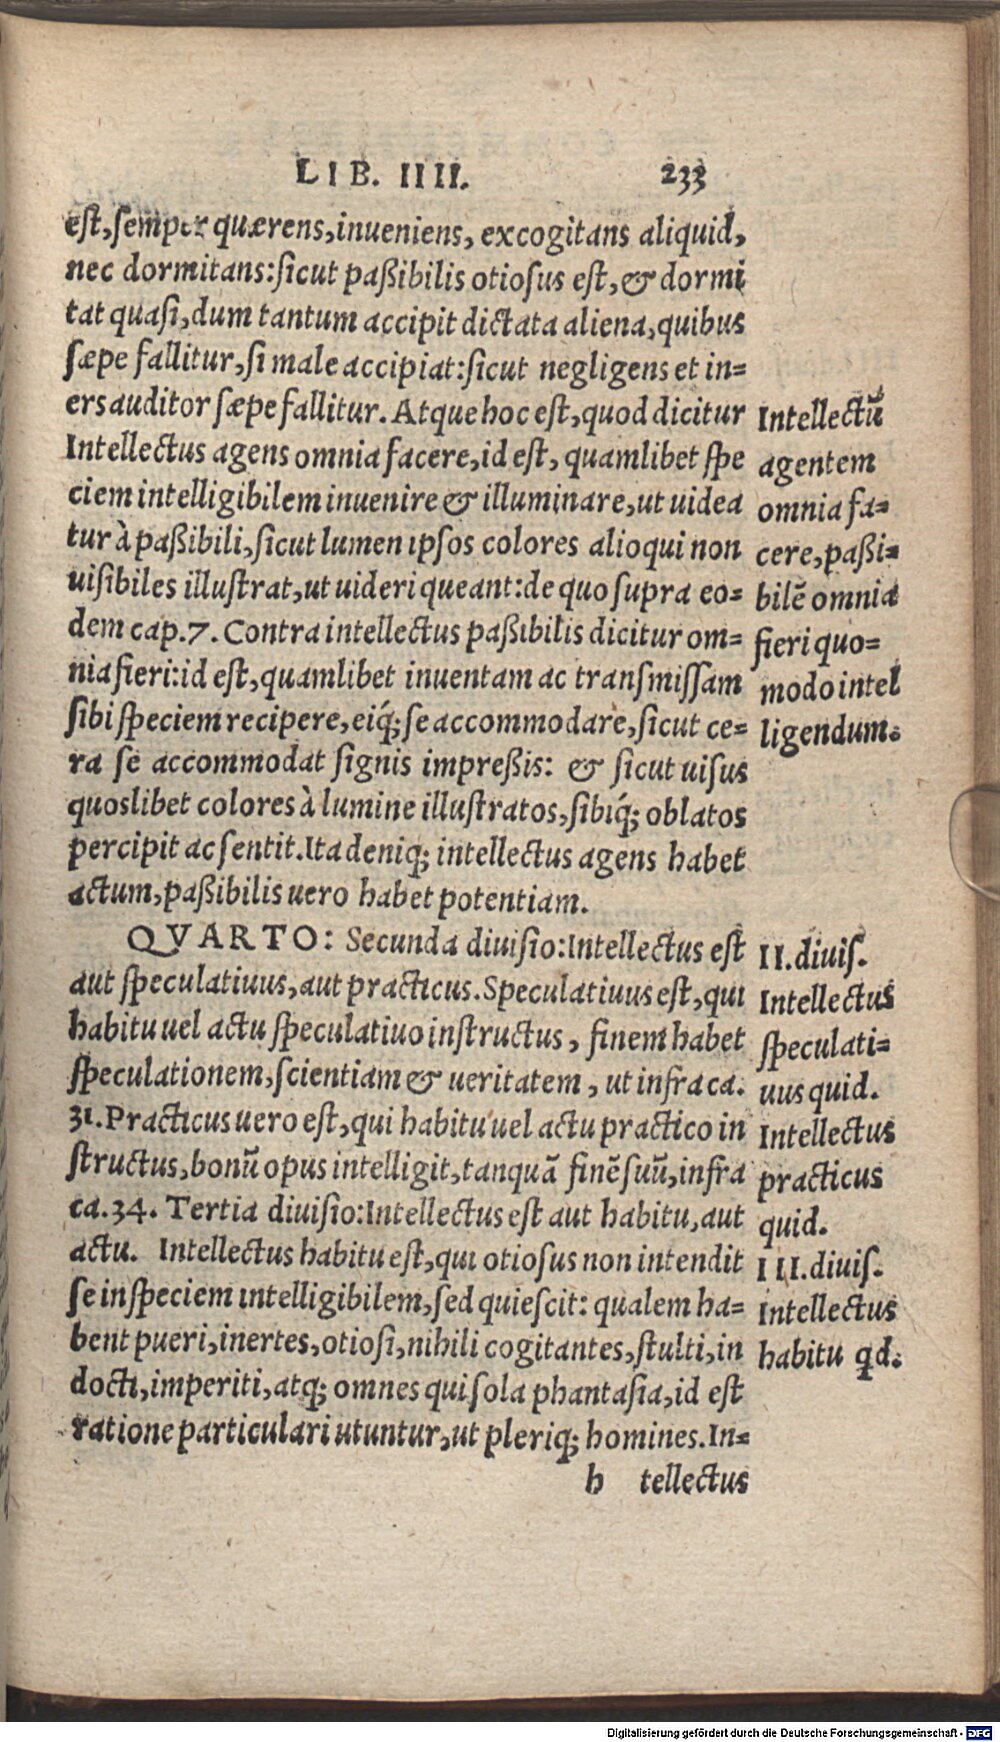 LIB. IIII. 233
est, semper quærens, inueniens, excogitans aliquid,
nec dormitans: sicut paßibilis otiosus est, & dormi
tat quasi, dum tantum accipit dictata aliena, quibus
sæpe fallitur, si male accipiat: sicut negligens et in=
ers auditor sæpe fallitur. Atque hoc est, quod dicitur
Intellectus agens omnia facere, id est, quamlibet spe
ciem intelligibilem inuenire & illuminare, ut uidea
tur à paßibili, sicut lumen ipsos colores alioqui non
uisibiles illustrat, ut uideri queant: de quo supra eo=
dem cap. 7. Contra intellectus paßibilis dicitur om=
nia fieri: id est, quamlibet inuentam ac transmissam
sibi speciem recipere, eiq́; se accommodare, sicut ce=
ra se accommodat signis impreßis: & sicut uisus
quoslibet colores à lumine illustratos, sibiq́; oblatos
percipit ac sentit. Ita deniq; intellectus agens habet
actum, paßibilis uero habet potentiam.
Intellectũ
agentem
omnia fa=
cere, paßi=
bilẽ omnia
fieri quo=
modo intel
ligendum.
QVARTO: Secunda diuisio: Intellectus est
aut speculatiuus, aut practicus. Speculatiuus est, qui
habitu uel actu speculatiuo instructus, finem habet
speculationem, scientiam & ueritatem, ut infra ca.
31. Practicus uero est, qui habitu uel actu practico in
structus, bonũ opus intelligit, tanquã finẽ suũ, infra
ca. 34. Tertia diuisio: Intellectus est aut habitu, aut
actu. Intellectus habitu est, qui otiosus non intendit
se in speciem intelligibilem, sed quiescit: qualem ha=
bent pueri, inertes, otiosi, nihili cogitantes, stulti, in
docti, imperiti, atq; omnes qui sola phantasia, id est
ratione particulari utuntur, ut pleriq; homines. In=
II. diuis.
Intellectus
speculati=
uus quid.
Intellectus
practicus
quid.
III. diuis.
Intellectus
habitu qd.
h tellectus
Digitalisierung gefördert durch die Deutsche Forschungsgemeinschaft - DFG